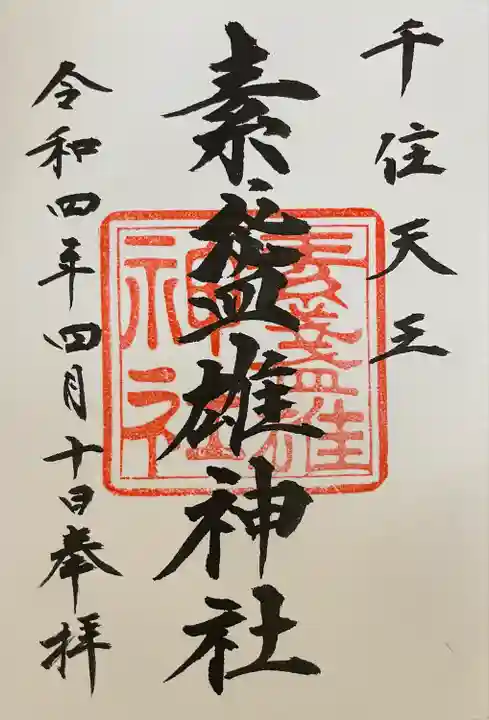 千住天王
素盞雄神社
素盞雄神社
令和四年四月十日奉拝